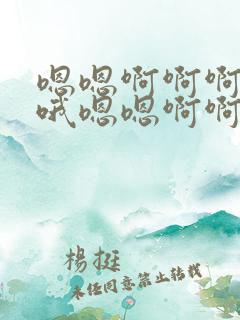 嗯嗯啊啊啊
哦嗯嗯啊啊
楊挺
未经同意禁止转载